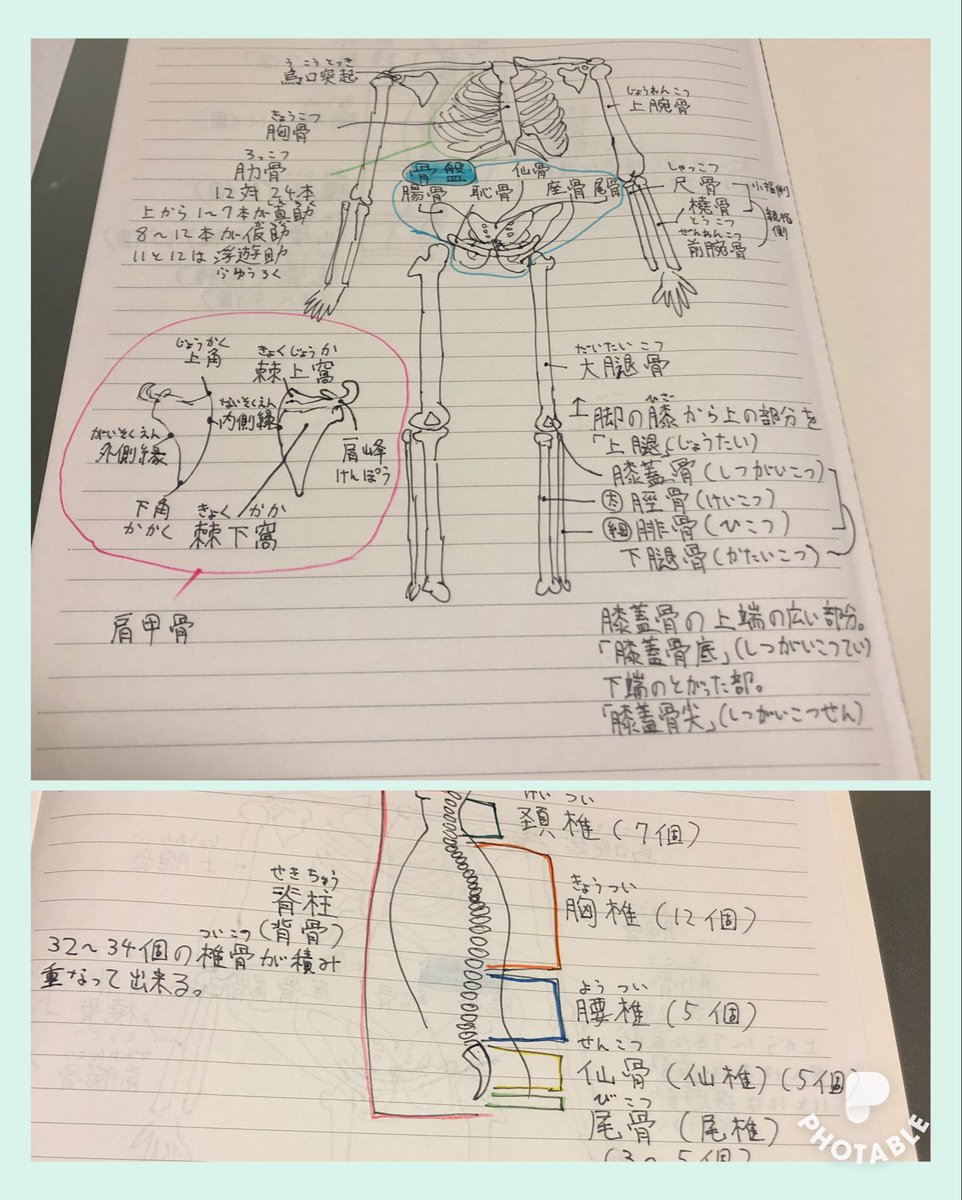 うこうとっき
烏口突起
きょうこつ
胸骨
ろっこつ
肋骨
12対24本
上から1〜7本が真肋
8〜12本が仮肋
11と12は浮遊肋
ふゆうろく
じょうわんこつ
上腕骨
骨盤
仙骨
腸骨
恥骨
座骨
尾骨
しゃっこつ
尺骨
小指側
橈骨
とうこつ
親指側
ぜんわんこつ
前腕骨
じょうかく
上角
きょくじょうか
棘上窩
ないそくえん
内側縁
がいそくえん
外側縁
肩峰
けんぽう
下角
かかく
きょくかか
棘下窩
肩甲骨
だいたいこつ
大腿骨
↑脚の膝から上の部分を
ひざ
「上腿」(じょうたい)
膝蓋骨(しつがいこつ)
太 脛骨(けいこつ)
細 腓骨(ひこつ)
下腿骨(かたいこつ)
膝蓋骨の上端の広い部分。
「膝蓋骨底」(しつがいこつてい)
下端のとがった部。
「膝蓋骨尖」(しつがいこつせん)
けいつい
頚椎(7個)
きょうつい
胸椎(12個)
せきちゅう
脊柱
(背骨)
ついこつ
32〜34個の椎骨が積み
重なって出来る。
ようつい
腰椎(5個)
せんこつ
仙骨(仙椎)(5個)
びこつ
尾骨(尾椎)
(3〜5個)
PHOTABLE